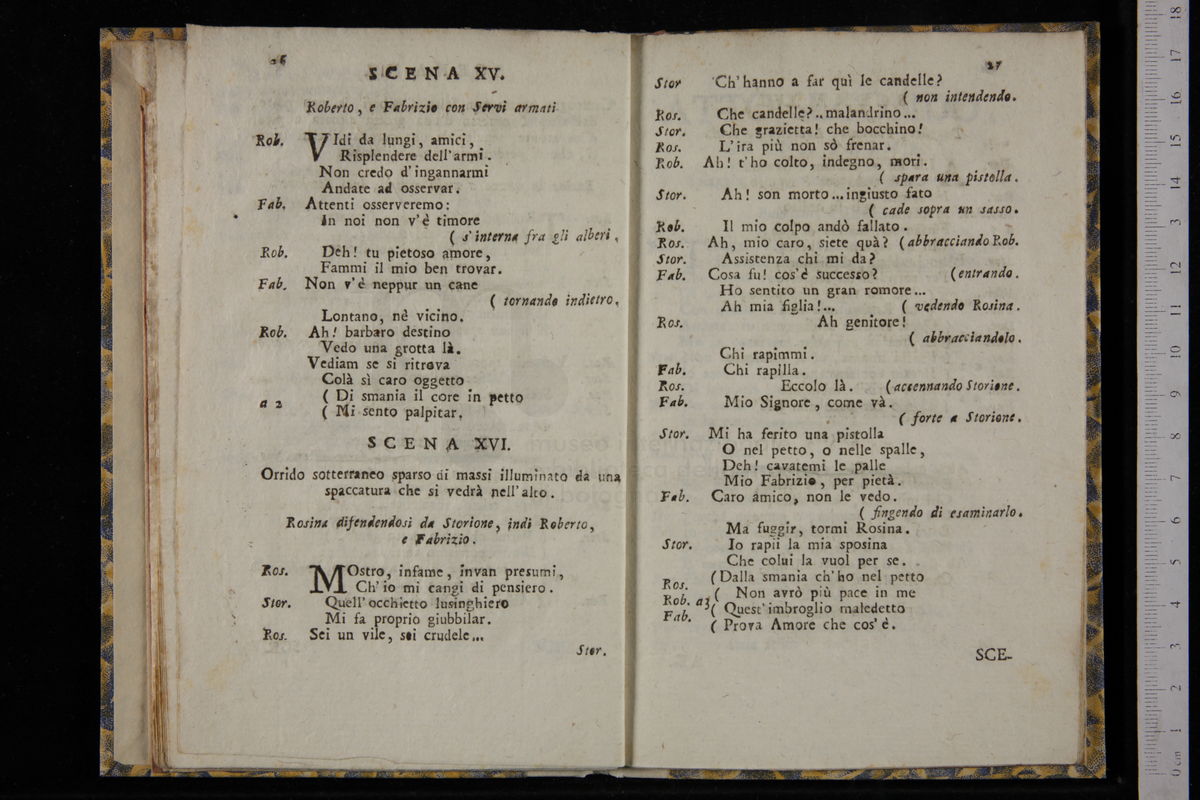 26
SCENA XV.
Roberto, e Fabrizio con Servi armati
Rob. VIdi da lungi, amici,
Risplendere dell'armi.
Non credo d'ingannarmi
Andate ad osservar.
Fab. Attenti osserveremo:
In noi non v'è timore
( s'interna fra gli alberi,
Rob. Deh! tu pietoso amore,
Fammi il mio ben trovar.
Fab. Non v'è neppur un cane
( tornando indietro,
Lontano, nè vicino.
Rob. Ah! barbaro destino
Vedo una grotta là.
Vediam se si ritrova
Colà sì caro oggetto
a 2 ( Di smania il core in petto
( Mi sento palpitar.
SCENA XVI.
Orrido sotterraneo sparso di massi illuminato da una
spaccatura che si vedrà nell'alto.
Rosina difendendosi da Storione, indi Roberto,
e Fabrizio.
Ros. MOstro, infame, invan presumi,
Ch'io mi cangi di pensiero.
Stor. Quell'occhietto lusinghiero
Mi fa proprio giubbilar.
Ros. Sei un vile, sei crudele...
Stor.
27
Stor Ch'hanno a far quì le candelle?
( non intendendo.
Ros. Che candelle?.. malandrino...
Stor. Che grazietta! che bocchino!
Ros. L'ira più non sò frenar.
Rob. Ah! t'ho colto, indegno, mori.
( spara una pistolla.
Stor. Ah! son morto... ingiusto fato
( cade sopra un sasso.
Rob. Il mio colpo andò fallato.
Ros. Ah, mio caro, siete quà? (abbracciando Rob.
Stor. Assistenza chi mi da?
Fab. Cosa fu! cos'è successo? (entrando.
Ho sentito un gran romore...
Ah mia figlia!... ( vedendo Rosina.
Ros. Ah genitore!
( abbracciandolo.
Chi rapimmi.
Fab. Chi rapilla.
Ros. Eccolo là. (accennando Storione.
Fab. Mio Signore, come và.
( forte a Storione.
Stor. Mi ha ferito una pistolla
O nel petto, o nelle spalle,
Deh! cavatemi le palle
Mio Fabrizio, per pietà.
Fab. Caro amico, non le vedo.
( fingendo di esaminarlo.
Ma fuggir, tormi Rosina.
Stor. Io rapii la mia sposina
Che colui la vuol per se.
Ros. (Dalla smania ch'ho nel petto
Rob. a3 ( Non avrò più pace in me
Fab. ( Quest'imbroglio maledetto
( Prova Amore che cos'è.
SCE-